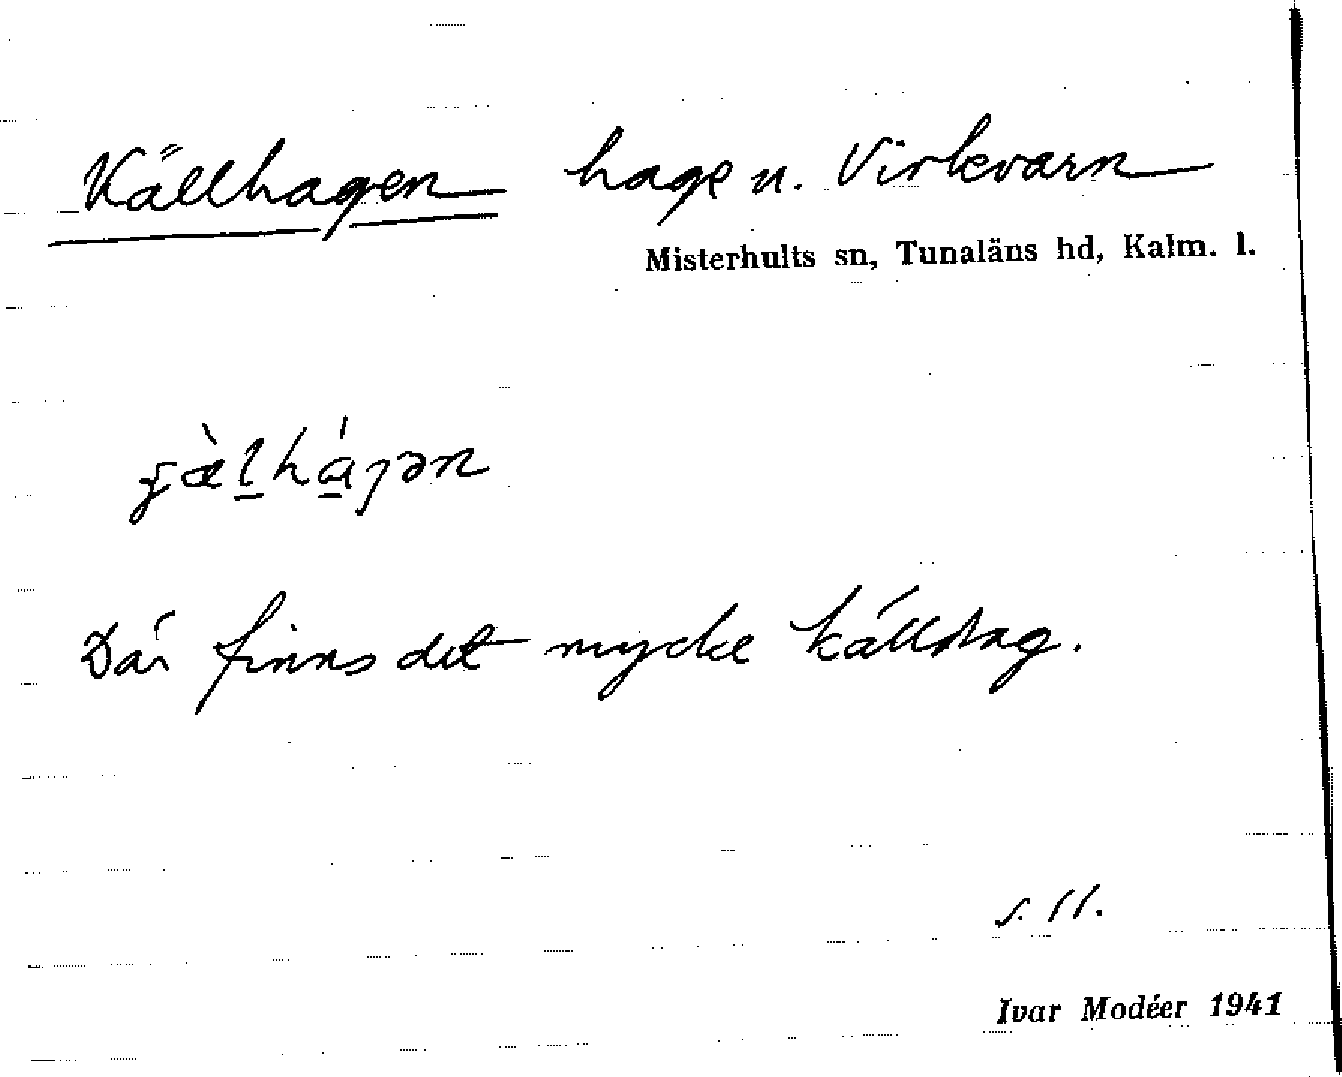 Källhagen hage u. Virkvarn
Misterhults sn, Tunaläns hd, Kalm. l.
Där finns det mycke källdrag.
s. 11.
Ivar Modéer 1941